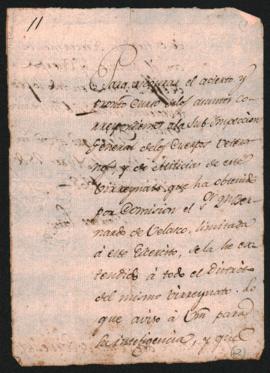 11
Para asegurar el acierto y
pronto curso de los asuntos co-
rrespondientes a la Sub-Inspeccion
General de los Cuerpos Vetera-
nos y de Milicias de este
Virreynato, que ha obtenido
por Comision el Sr Dn Ber-
nardo de Velasco, limitada
à este Exercito, se la he ex-
tendido à todo el Distrito
del mismo Virreynato. Lo
que aviso à Vm para
su inteligencia, y que